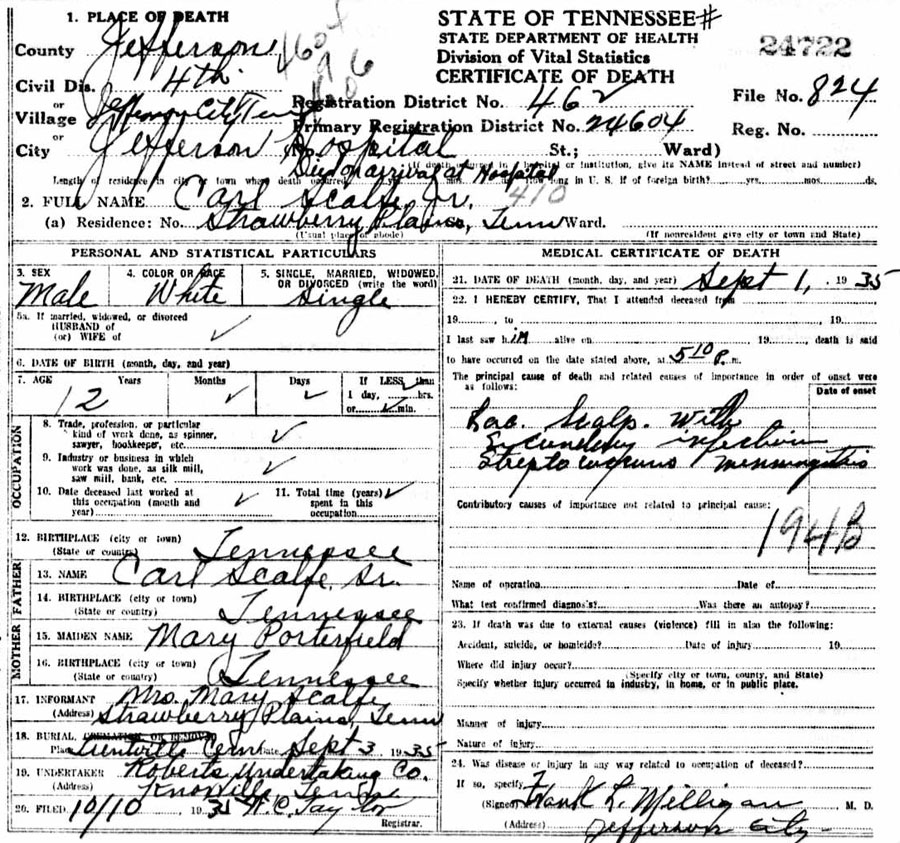 1. PLACE OF DEATH
County Jefferson
Civil Dis. 4th
or
Village Jefferson City Tenn
or
City Jefferson Hospital St.; Ward)
STATE OF TENNESSEE #
STATE DEPARTMENT OF HEALTH
Division of Vital Statistics
CERTIFICATE OF DEATH
24722
Registration District No. 462
File No. 824
Primary Registration District No. 24604
Reg. No.
(If death occurred in a hospital or institution, give its NAME instead of street and number)
Died on arrival at Hospital
Length of residence in city or town where death occurred yrs. mos. ds. How long in U. S. if of foreign birth? yrs. mos. ds.
410
2. FULL NAME Carl Scalfe, Jr.
(a) Residence: No. Strawberry Plains, Tenn Ward.
(Usual place of abode) (If nonresident give city or town and State)
PERSONAL AND STATISTICAL PARTICULARS
3. SEX Male
4. COLOR OR RACE White
5. SINGLE, MARRIED, WIDOWED, OR DIVORCED (write the word) Single
5a. If married, widowed, or divorced
HUSBAND of
(or) WIFE of ✓
6. DATE OF BIRTH (month, day, and year)
7. AGE Years 12 Months ✓ Days ✓ If LESS than 1 day, hrs. or ✓ min.
OCCUPATION
8. Trade, profession, or particular kind of work done, as spinner, sawyer, bookkeeper, etc. ✓
9. Industry or business in which work was done, as silk mill, saw mill, bank, etc. ✓
10. Date deceased last worked at this occupation (month and year) ✓
11. Total time (years) spent in this occupation ✓
12. BIRTHPLACE (city or town)
(State or country) Tennessee
FATHER
13. NAME Carl Scalfe, Sr.
14. BIRTHPLACE (city or town)
(State or country) Tennessee
MOTHER
15. MAIDEN NAME Mary Porterfield
16. BIRTHPLACE (city or town)
(State or country) Tennessee
17. INFORMANT Mrs. Mary Scalfe
(Address) Strawberry Plains, Tenn
18. BURIAL, CREMATION OR REMOVAL
Place Cem Date Sept 3 1935
19. UNDERTAKER Roberts Undertaking Co.
(Address) Knoxville Tenn
20. FILED 10/10 1935 W. C. Taylor
Registrar.
MEDICAL CERTIFICATE OF DEATH
21. DATE OF DEATH (month, day, and year) Sept 1, 1935
22. I HEREBY CERTIFY, That I attended deceased from
19 , to , 19
I last saw him alive on 19 , death is said
to have occurred on the date stated above, at 5 10 P. m.
The principal cause of death and related causes of importance in order of onset were as follows:
Date of onset
Lac. Scalp. With
Secondary infection
Streptococcus Menningitis
Contributory causes of importance not related to principal cause:
194B
Name of operation Date of
What test confirmed diagnosis? Was there an autopsy?
23. If death was due to external causes (violence) fill in also the following:
Accident, suicide, or homicide? Date of injury 19
Where did injury occur?
(Specify city or town, county, and State)
Specify whether injury occurred in industry, in home, or in public place.
Manner of injury
Nature of injury
24. Was disease or injury in any way related to occupation of deceased?
If so, specify
(Signed) Frank L. Milligan M. D.
(Address) Jefferson City